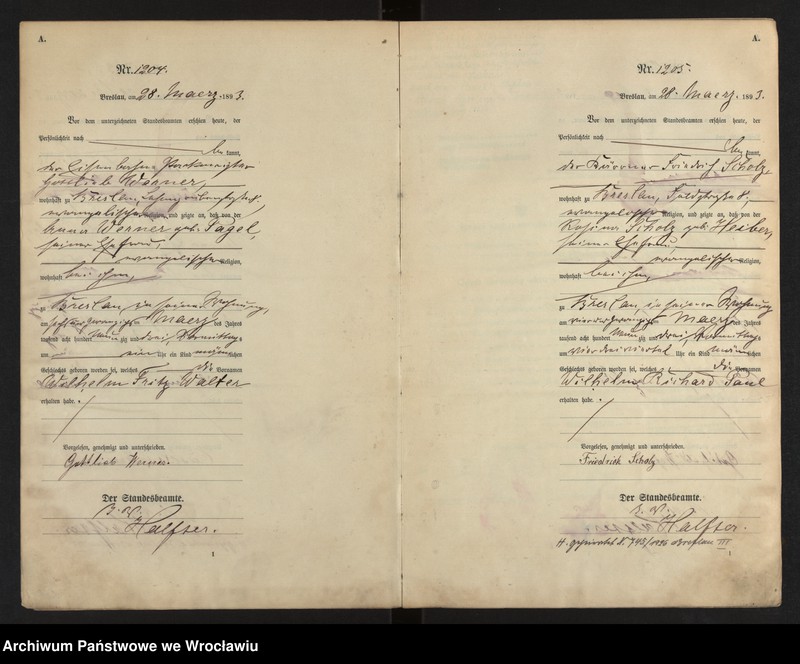 A.
Nr. 1204.
Breslau, am 28. Maerz 1893.
Vor dem unterzeichneten Standesbeamten erschien heute, der
Persönlichkeit nach
kannt,
der Eisenbahn
Gottlieb Werner,
wohnhaft zu Breslau,
evangelischer Religion, und zeigte an, daß von der
Anna Werner geb. Pagel,
seiner Ehefrau,
evangelischer Religion,
wohnhaft bei ihm,
zu Breslau, in seiner Wohnung,
am Maerz des Jahres
tausend acht hundert neunzig und drei, Vormittags
um ein Uhr ein Kind männlichen
Geschlechts geboren worden sei, welches die Vornamen
Wilhelm Fritz Walter
erhalten habe.
Vorgelesen, genehmigt und unterschrieben.
Gottlieb Werner.
Der Standesbeamte.
I. V.
Halfter.
1
A.
Nr. 1205.
Breslau, am 28. Maerz 1893.
Vor dem unterzeichneten Standesbeamten erschien heute, der
Persönlichkeit nach
kannt,
der Friedrich Scholz,
wohnhaft zu Breslau, Feldstraße 8,
evangelischer Religion, und zeigte an, daß von der
Rosina Scholz geb. Heiber,
seiner Ehefrau,
evangelischer Religion,
wohnhaft bei ihm,
zu Breslau, in seiner Wohnung
am vierundzwanzigsten Maerz des Jahres
tausend acht hundert neunzig und drei, Vormittags
um vierdreiviertel Uhr ein Kind männlichen
Geschlechts geboren worden sei, welches die Vornamen
Wilhelm Richard Paul
erhalten habe.
Vorgelesen, genehmigt und unterschrieben.
Friedrich Scholz
Der Standesbeamte.
I. V.
Halfter.
Breslau III
1
Archiwum Państwowe we Wrocławiu